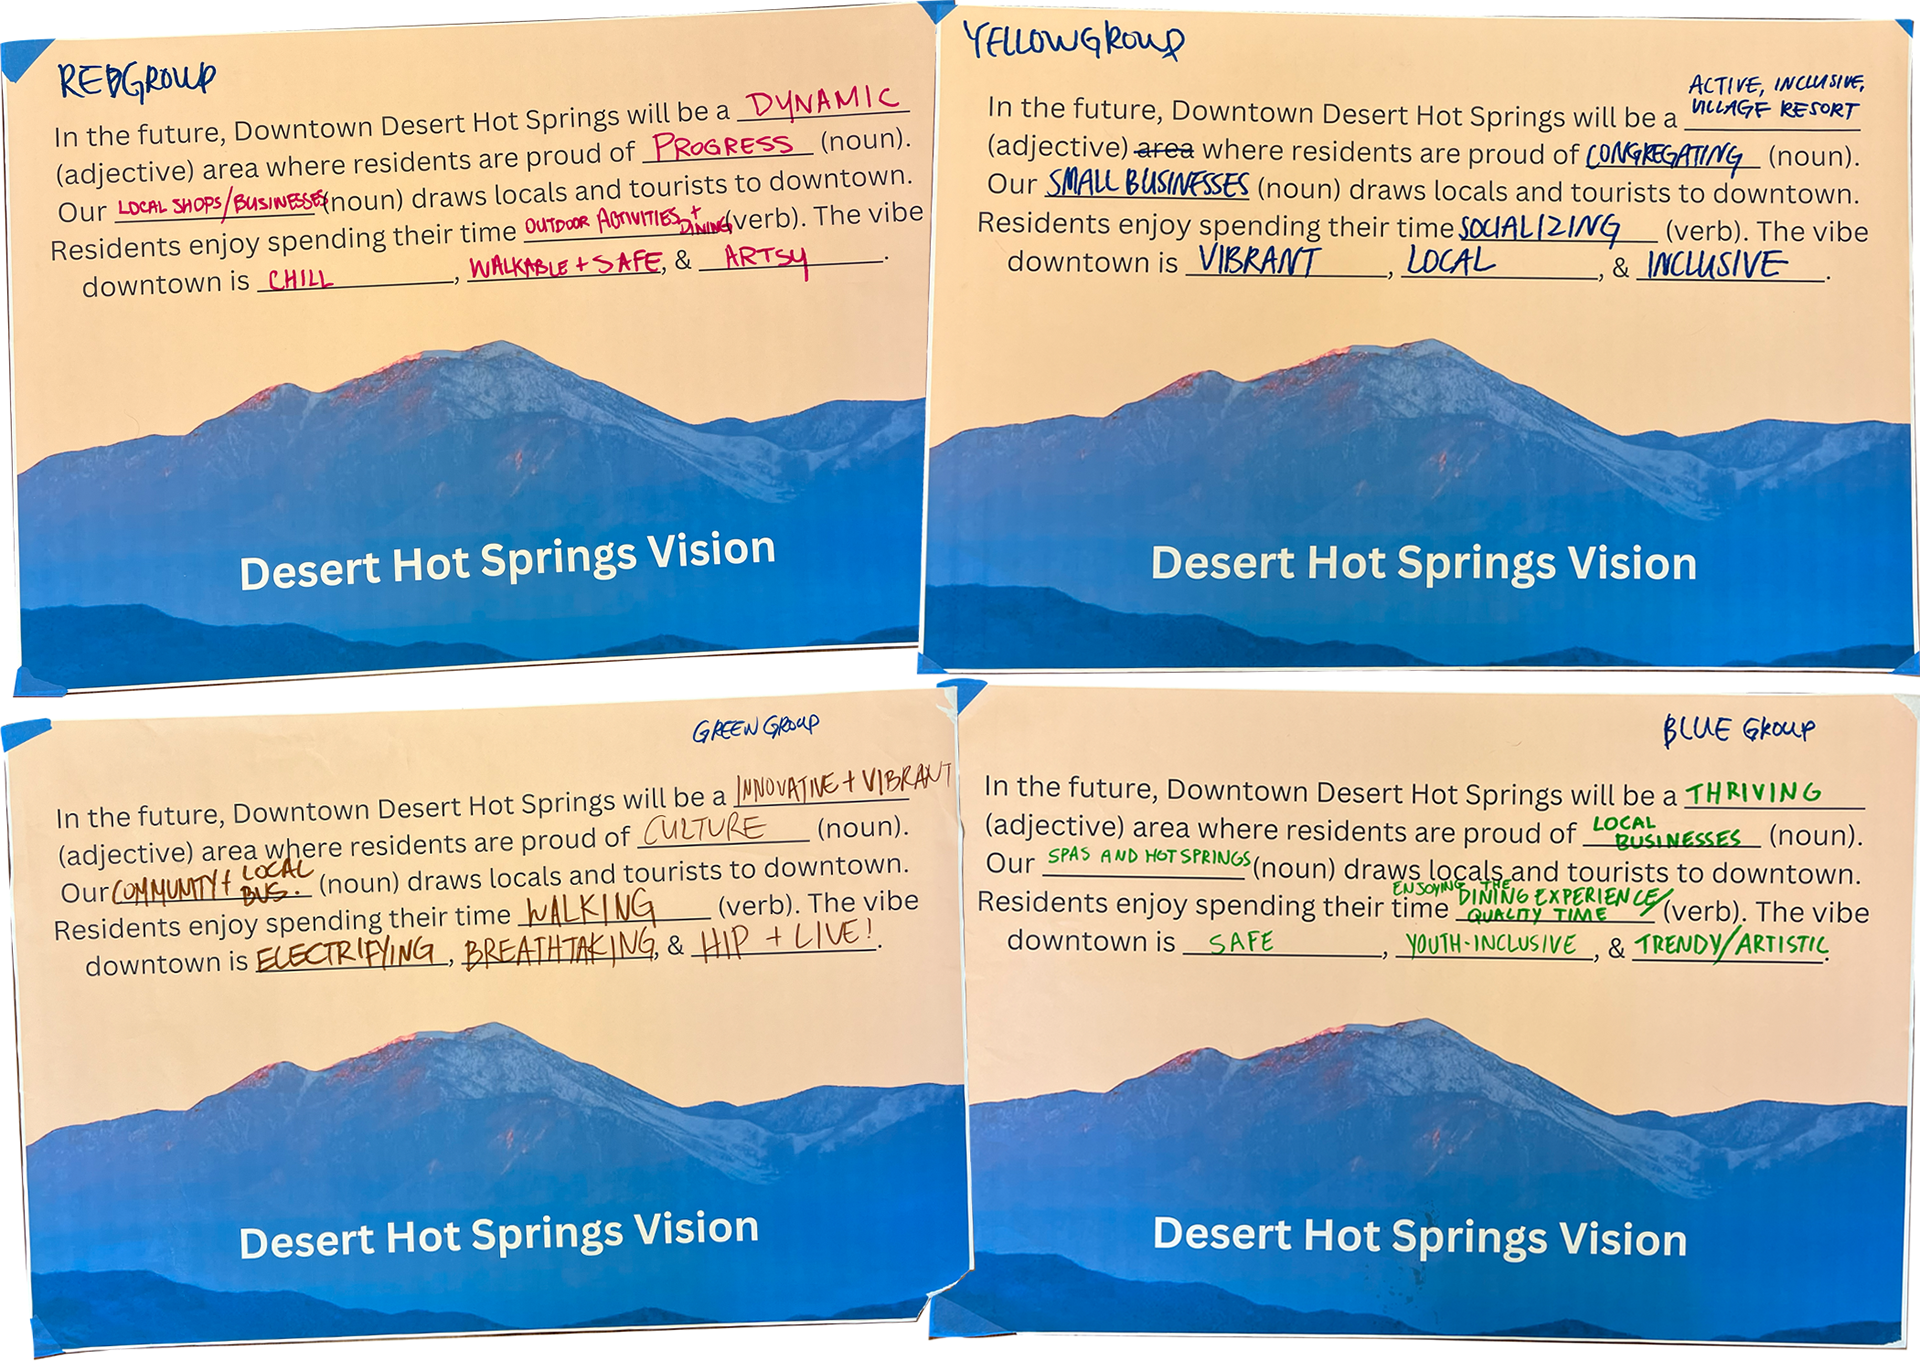 REDGROUP
In the future, Downtown Desert Hot Springs will be a DYNAMIC
(adjective) area where residents are proud of PROGRESS (noun).
Our LOCAL SHOPS/BUSINESSES (noun) draws locals and tourists to downtown.
Residents enjoy spending their time OUTDOOR ACTIVITIES + DINING (verb). The vibe
downtown is CHILL, WALKABLE + SAFE, & ARTSY.
Desert Hot Springs Vision
YELLOWGROUP
ACTIVE, INCLUSIVE,
In the future, Downtown Desert Hot Springs will be a VILLAGE RESORT
(adjective) area where residents are proud of CONGREGATING (noun).
Our SMALL BUSINESSES (noun) draws locals and tourists to downtown.
Residents enjoy spending their time SOCIALIZING (verb). The vibe
downtown is VIBRANT, LOCAL, & INCLUSIVE.
Desert Hot Springs Vision
GREEN GROUP
In the future, Downtown Desert Hot Springs will be a INNOVATIVE + VIBRANT
(adjective) area where residents are proud of CULTURE (noun).
Our COMMUNITY + LOCAL BUS. (noun) draws locals and tourists to downtown.
Residents enjoy spending their time WALKING (verb). The vibe
downtown is ELECTRIFYING, BREATHTAKING, & HIP + LIVE!.
Desert Hot Springs Vision
BLUE GROUP
In the future, Downtown Desert Hot Springs will be a THRIVING
(adjective) area where residents are proud of LOCAL BUSINESSES (noun).
Our SPAS AND HOT SPRINGS (noun) draws locals and tourists to downtown.
Residents enjoy spending their time ENJOYING THE DINING EXPERIENCE/ QUALITY TIME (verb). The vibe
downtown is SAFE, YOUTH-INCLUSIVE, & TRENDY/ARTISTIC.
Desert Hot Springs Vision